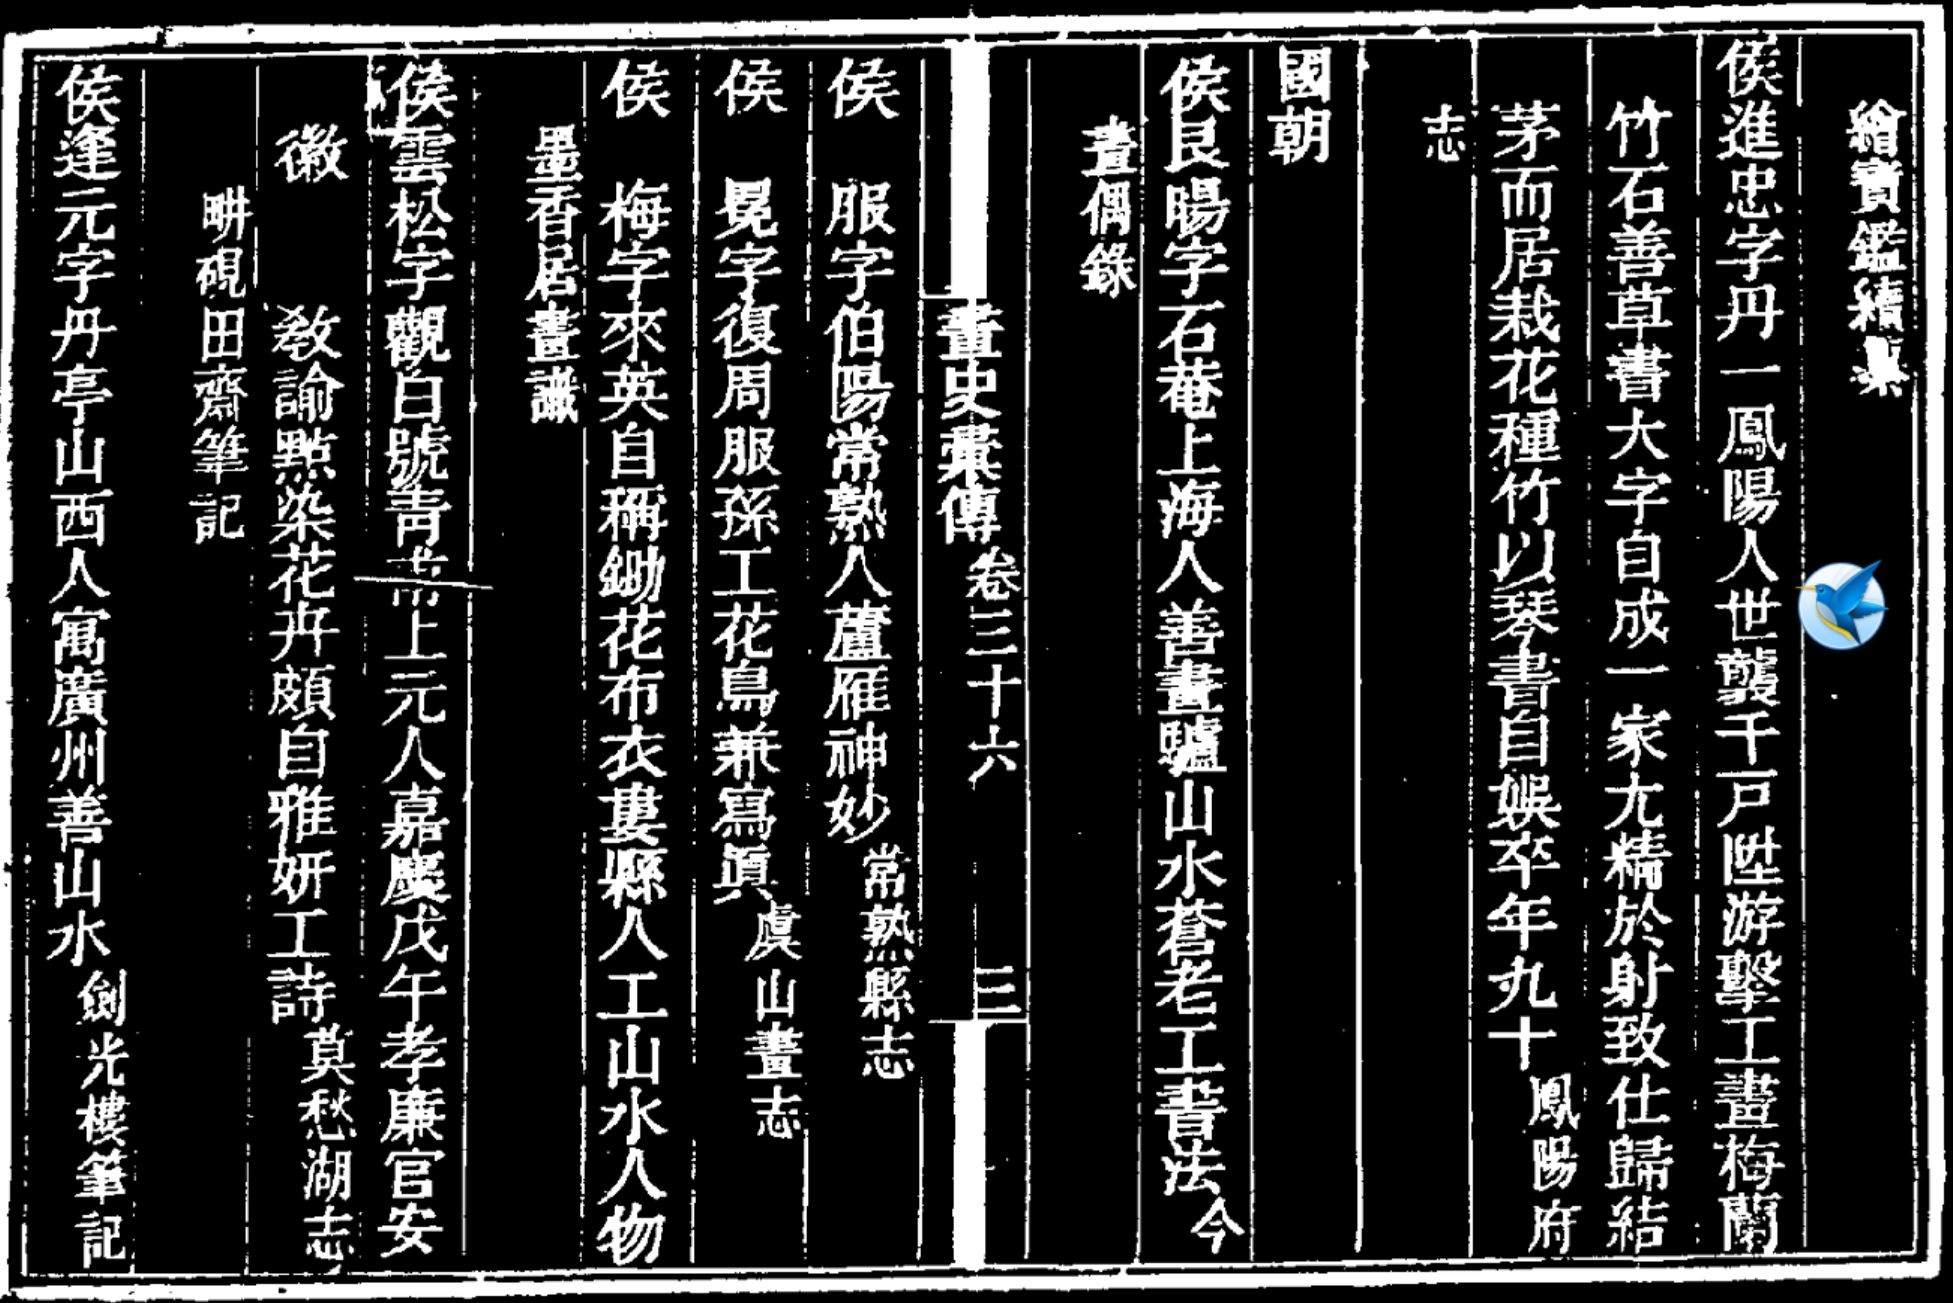 繪寶鑑續纂
侯進忠字丹一鳳陽人世襲千戸陞游擊工畫梅蘭
竹石善草書大字自成一家尤精於射致仕歸結
茅而居栽花種竹以琴書自娛卒年九十鳳陽府
志
國朝
侯艮暘字石菴上海人善畫驢山水蒼老工書法今
畫偶錄
畫史彙傳 卷三十六 三
侯 服字伯陽常熟人蘆雁神妙常熟縣志
侯 冕字復周服孫工花鳥兼寫眞虞山畫志
侯 梅字來英自稱鋤花布衣婁縣人工山水人物
墨香居畫識
侯雲松字觀白號靑 上元人嘉慶戊午孝廉官安
徽 敎諭點染花卉頗自雅妍工詩莫愁湖志
畊硯田齋筆記
侯逢元字丹亭山西人寓廣州善山水劍光樓筆記